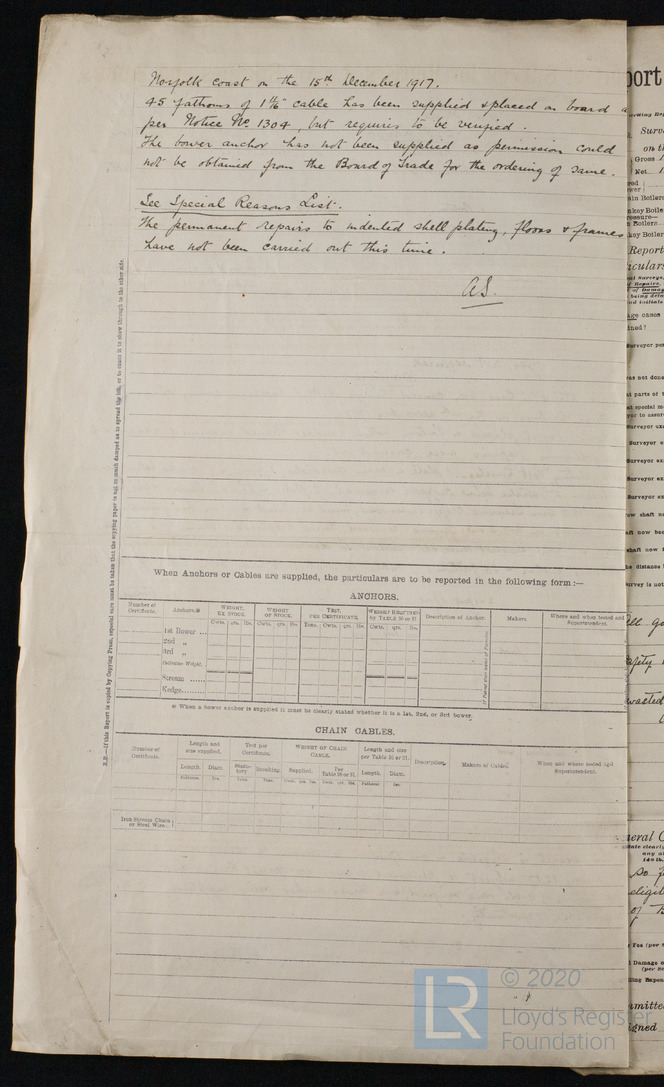 Norfolk coast on the 15th December 1917.
45 fathoms of 1 1/16" cable has been supplied & placed on board
per Notice No. 1304, but requires to be verified.
The bower anchor has not been supplied as permission could
not be obtained from the Board of Trade for the ordering of same.
See Special Reasons List.
The permanent repairs to indented shell plating, floors & frames
have not been carried out this time.
A.S.
When Anchors or Cables are supplied, the particulars are to be reported in the following form :—
ANCHORS.
Number of Certificate. Anchors.* WEIGHT, EX STOCK. WEIGHT OF STOCK. TEST, PER CERTIFICATE. WEIGHT REQUIRED by TABLE 30 or 31 Description of Anchor. Makers. Where and when tested and Superintendent.
Cwts. qrs. lbs. Cwts. qrs. lbs. Tons. Cwts. qrs. lbs. Cwts. qrs. lbs.
1st Bower ...
2nd „
3rd „
Collective Weight.
Stream ......
Kedge.......
* When a bower anchor is supplied it must be clearly stated whether it is a 1st, 2nd, or 3rd bower.
CHAIN CABLES.
Number of Certificate. Length and size supplied. Test per Certificate. WEIGHT OF CHAIN CABLE. Length and size per Table 30 or 31. Description. Makers of Cables. When and where tested and Superintendent.
Length. Diam. Statutory Breaking. Supplied. Per Table 30 or 31. Length. Diam.
Fathoms. Ins. Tons. Tons. Cwts. qrs. lbs. Cwts. qrs. lbs. Fathoms. Ins.
Iron Stream Chain or Steel Wire...
N.B.—If this Report is copied by Copying Press, especial care must be taken that the copying paper is not so much damped as to spread the ink, or to cause it to show through to the other side.
LR
© 2020
Lloyd's Register
Foundation